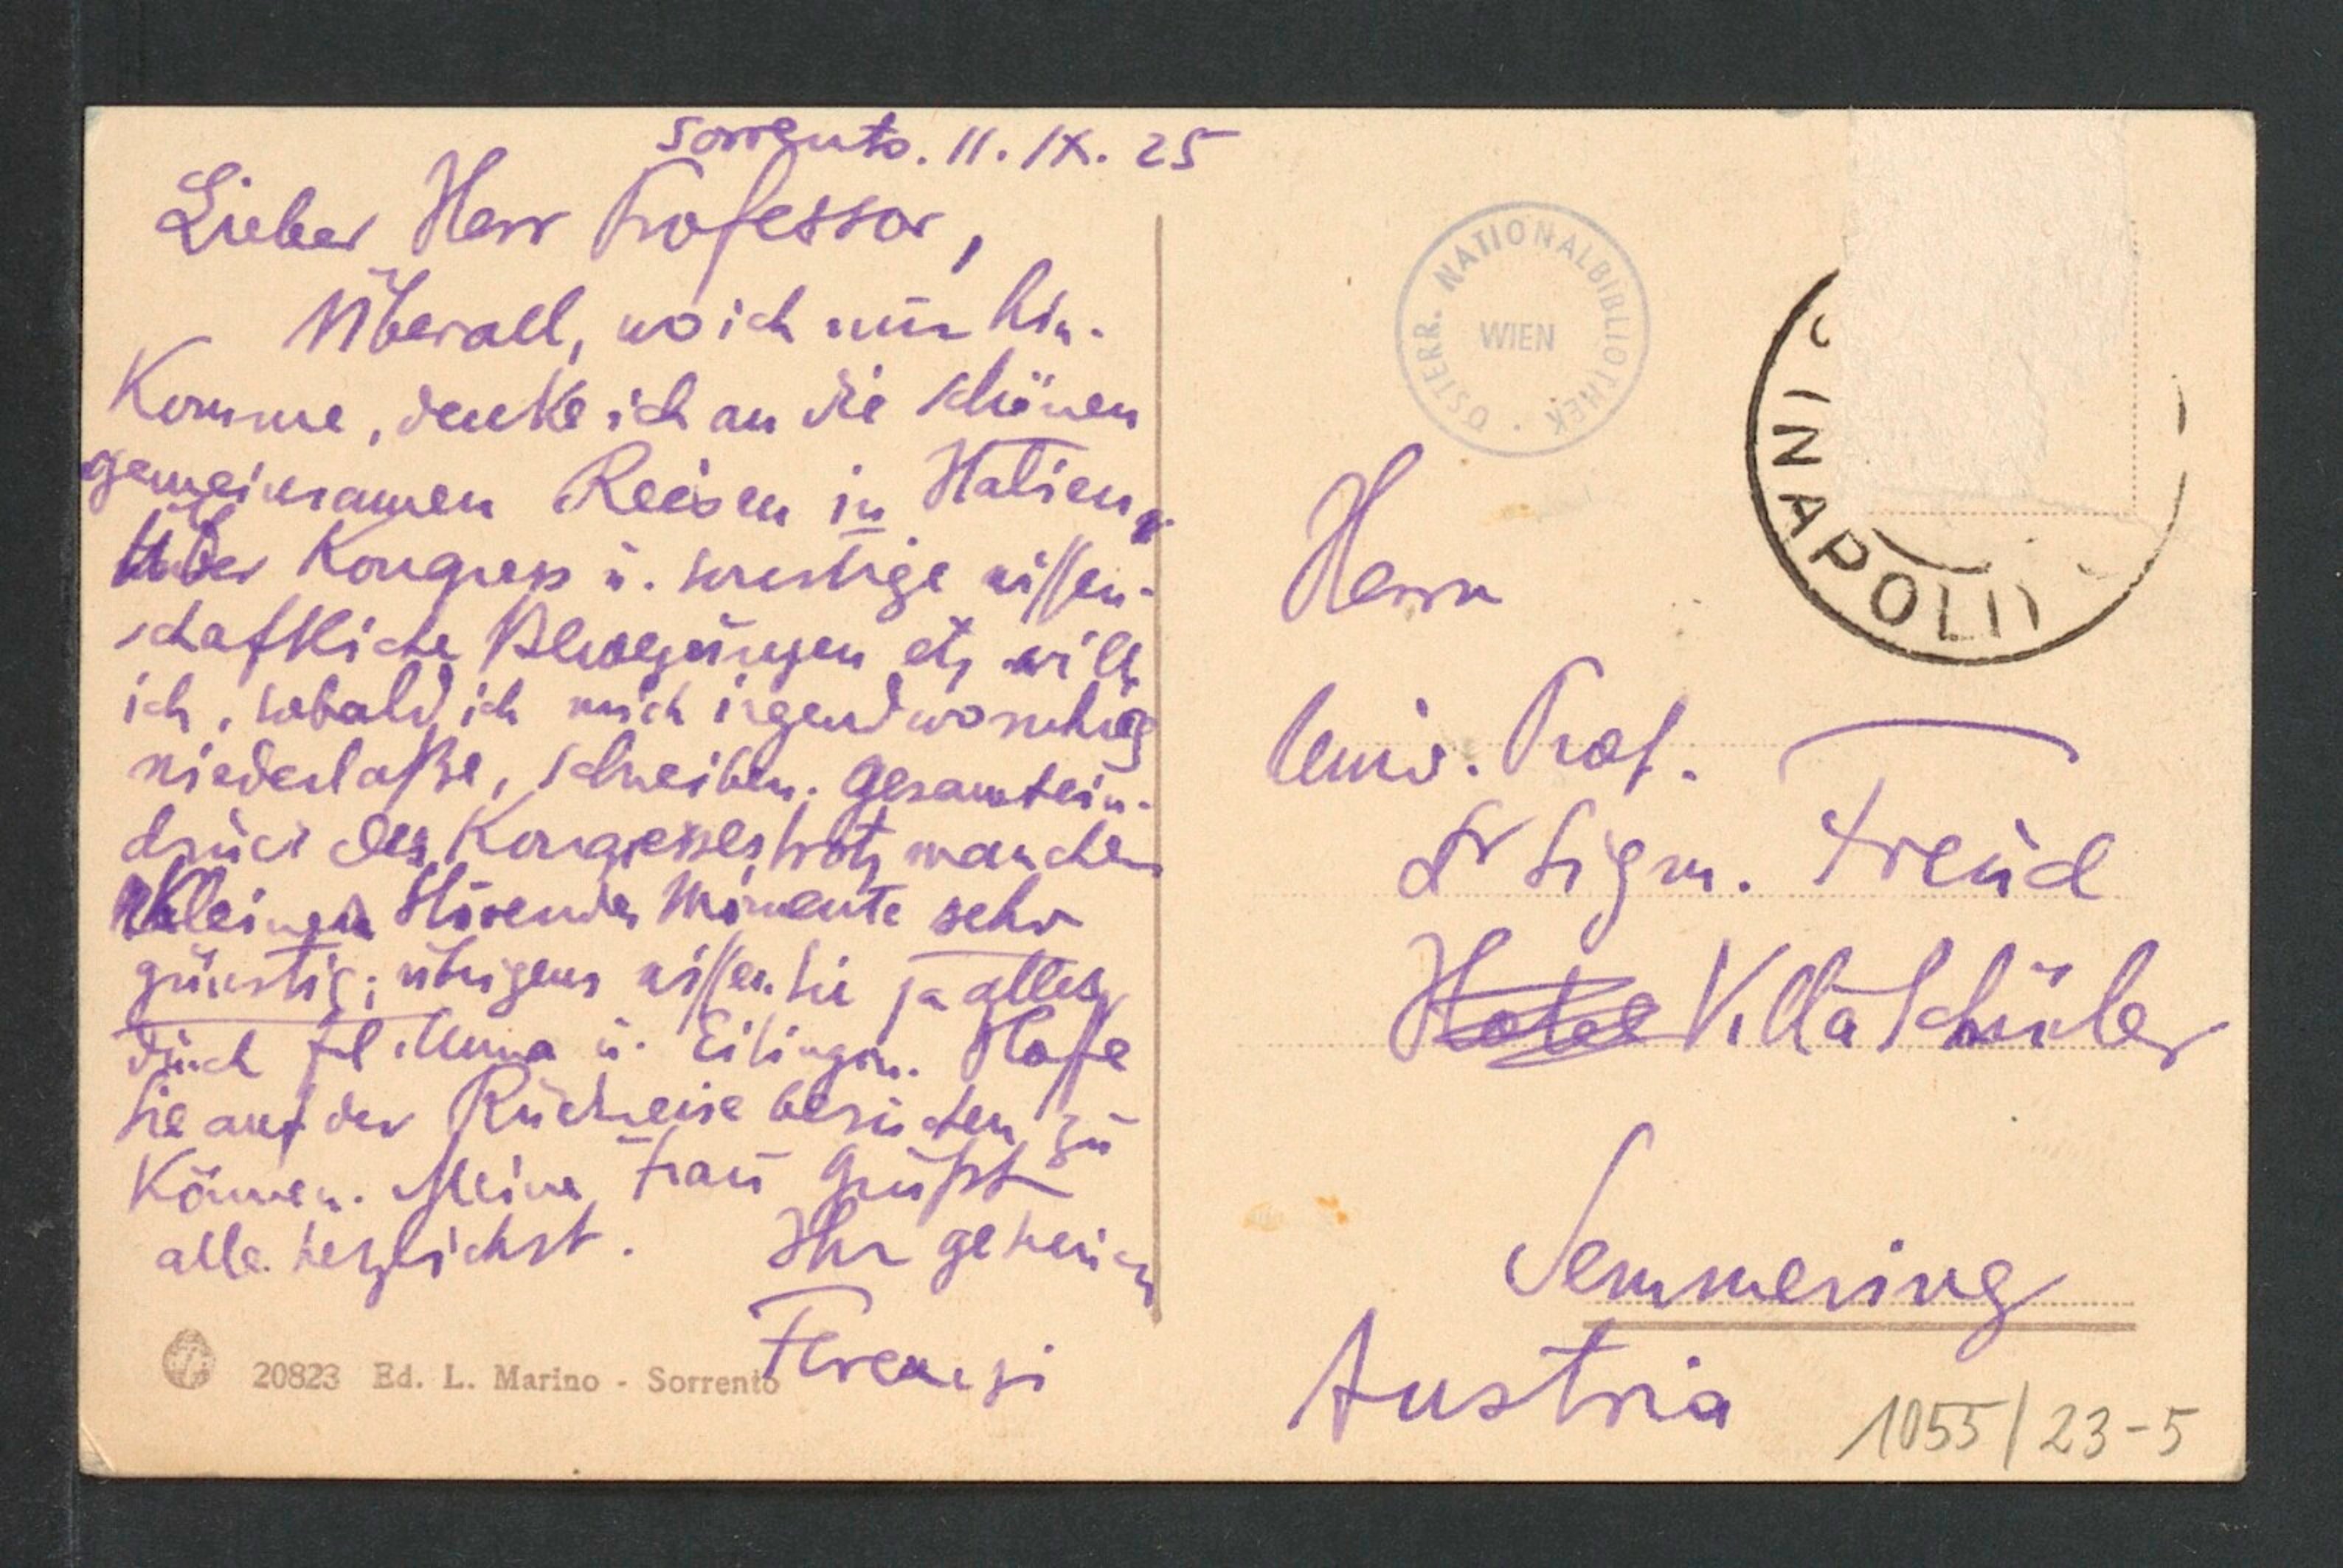 Sorrento. 11. IX. 25
Lieber Herr Professor,
Überall, wo ich nur hin-
komme, denke ich an die schönen
gemeinsamen Reisen in Italien.
Über Kongress u. sonstige wissen-
schaftliche Bewegungen etz will
ich, sobald ich mich irgendwo ruhig
niederlaße, schreiben. Gesamtein-
druck des Kongresses trotz mancher
kleinen störender Momente sehr
günstig; übrigens wissen Sie ja alles
durch Frl. Anna u. Eitingon. Hoffe
Sie auf der Rückreise besuchen zu
können. Meine Frau grüßt
alle herzlichst. Ihr getreuer
Ferenczi
20823 Ed. L. Marino - Sorrento
ÖSTERR. NATIONALBIBLIOTHEK
WIEN
(NAPOLI)
Herrn
Univ. Prof.
Dr Sigm. Freud
Hotel Villa Schüler
Semmering
Austria
1055/23-5